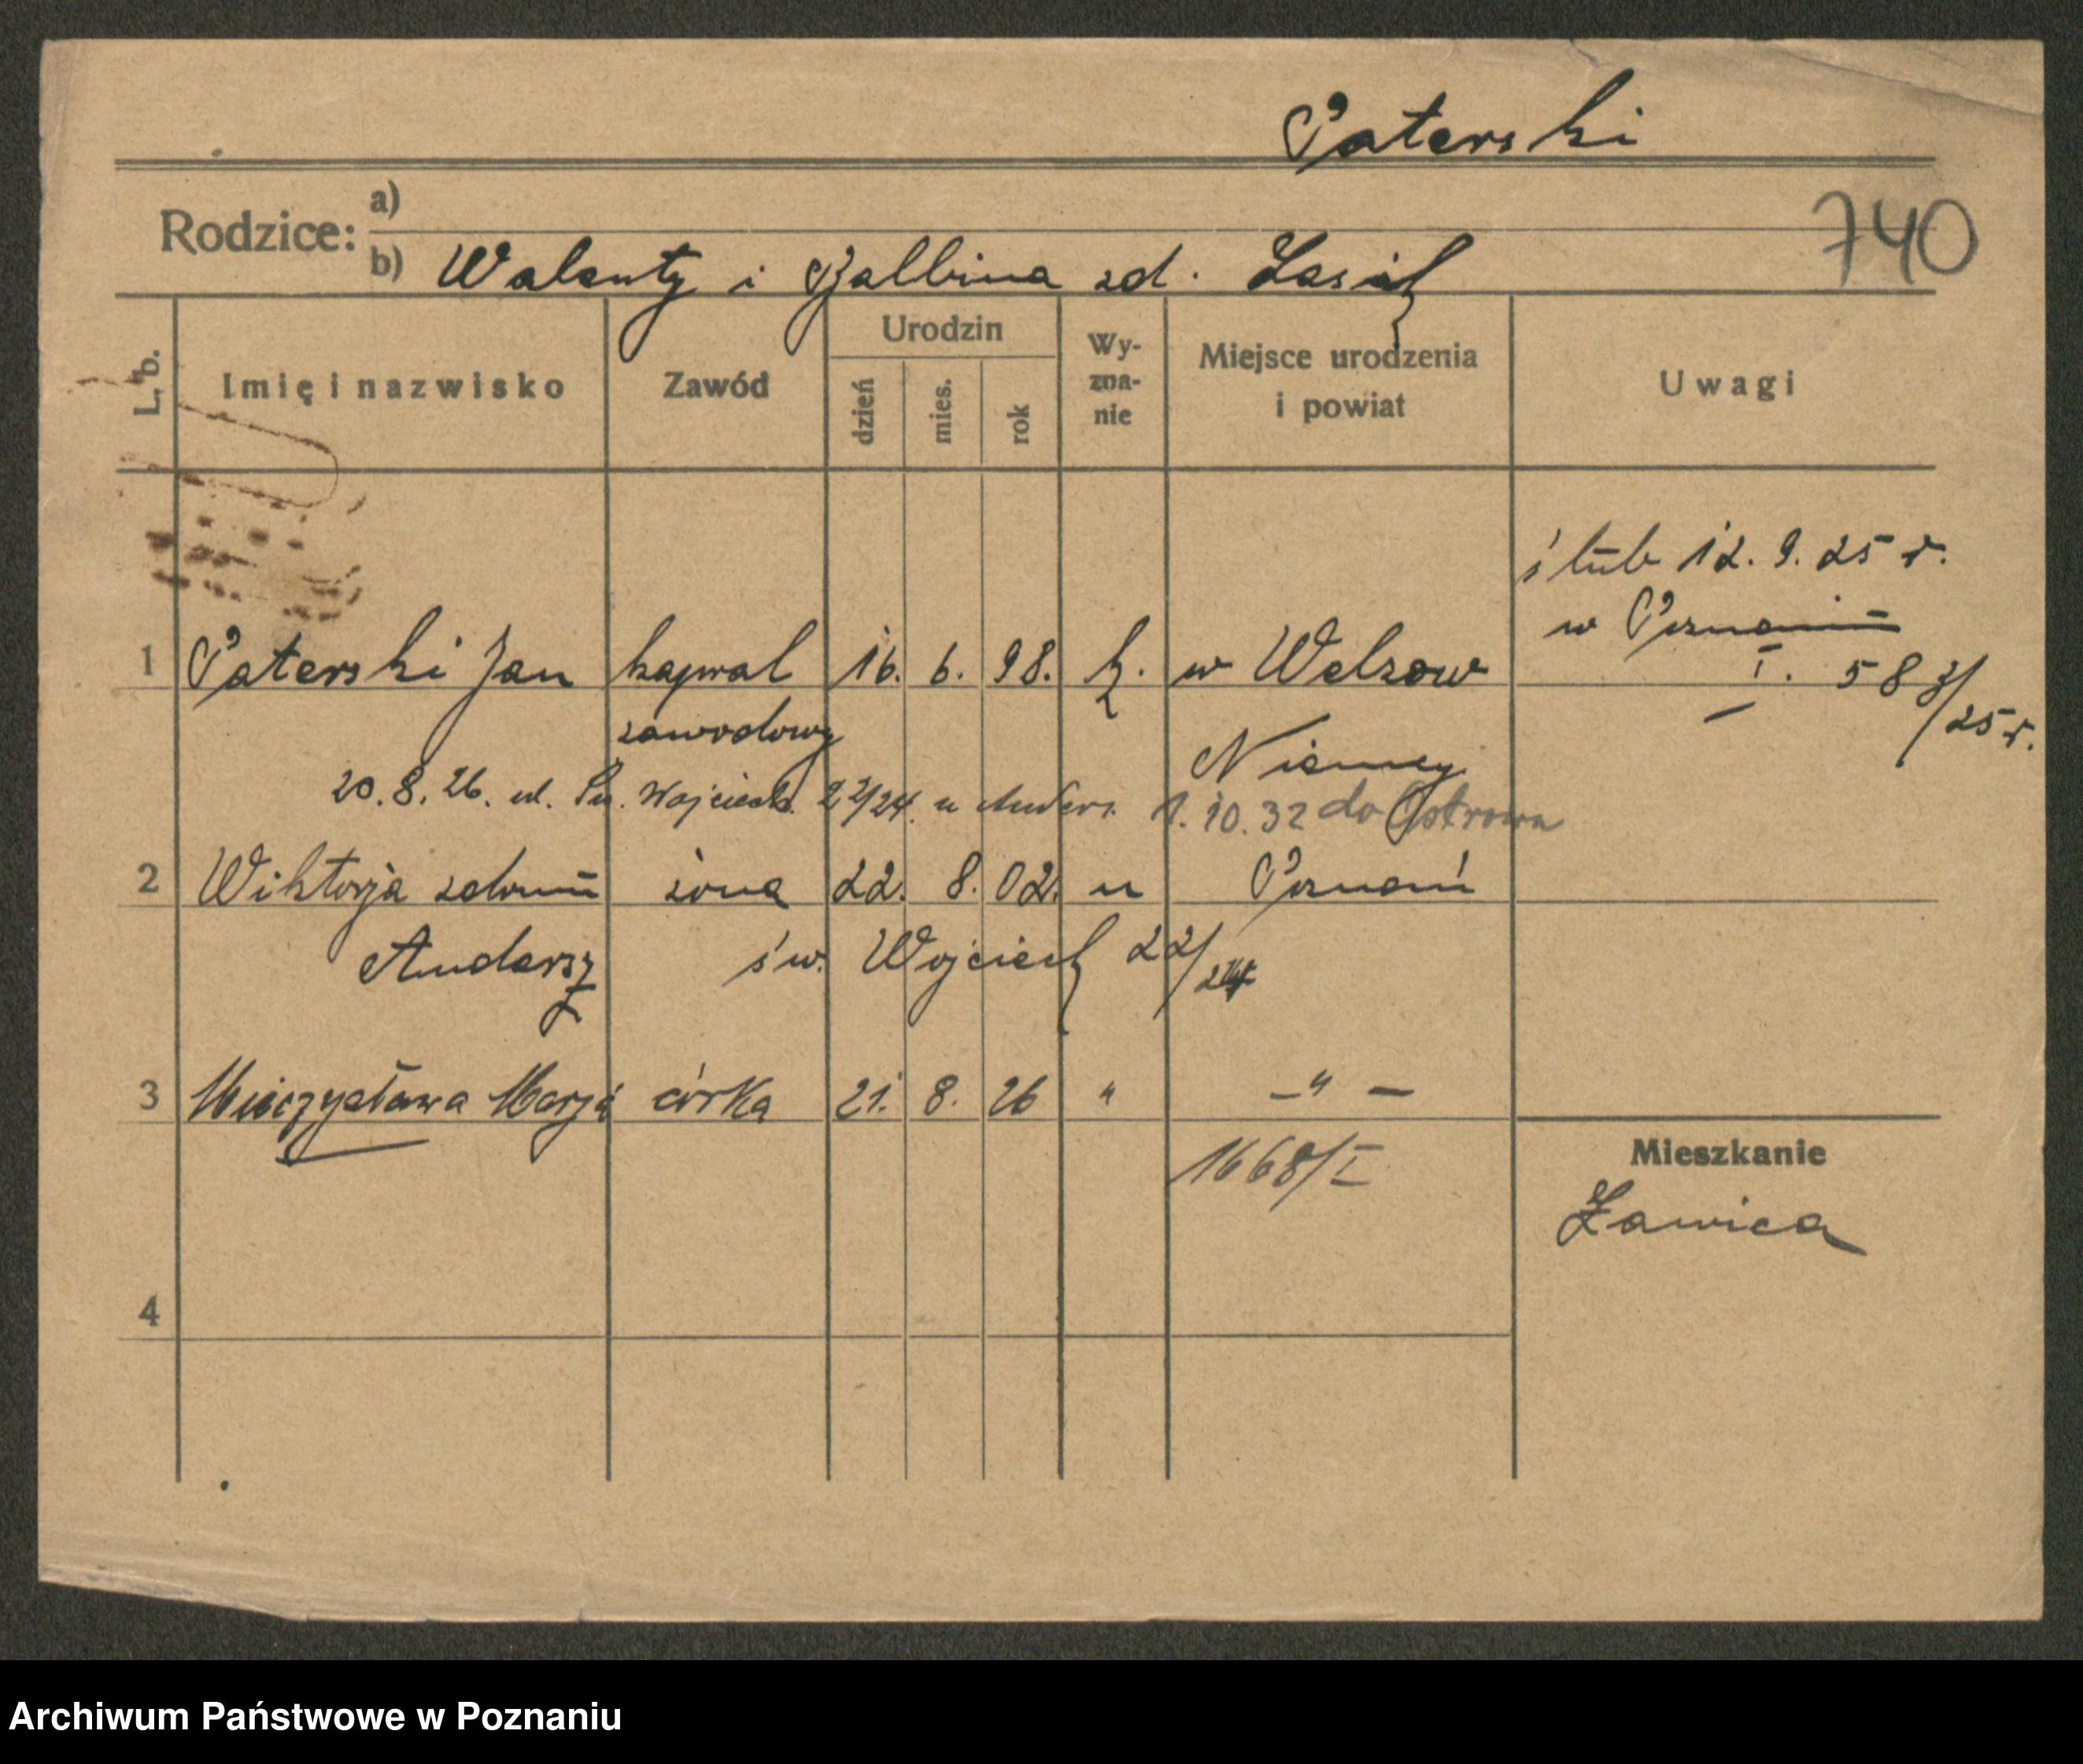 Paterski
740
Rodzice: a)
b) Walenty i Balbina zd.
L. b. Imię i nazwisko Zawód Urodzin dzień mies. rok Wy-zna-nie Miejsce urodzenia i powiat Uwagi
ślub 12. 9. 25 r.
w Poznaniu
I. 583/25 r.
1 Paterski Jan kapral 16. 6. 98. k. w Welzow
zawodowy Niemcy
20. 8. 26. ul. Św. Wojciech. 22/24. u Anders. 1. 10. 32 do Ostrowa
2 Wiktorja żona 22. 8. 02. " Poznań
Andersz św. Wojciech 22/24
3 Mieczysława Marja córka 21. 8. 26 " - " -
1668/I
Mieszkanie
Ławica
4
Archiwum Państwowe w Poznaniu